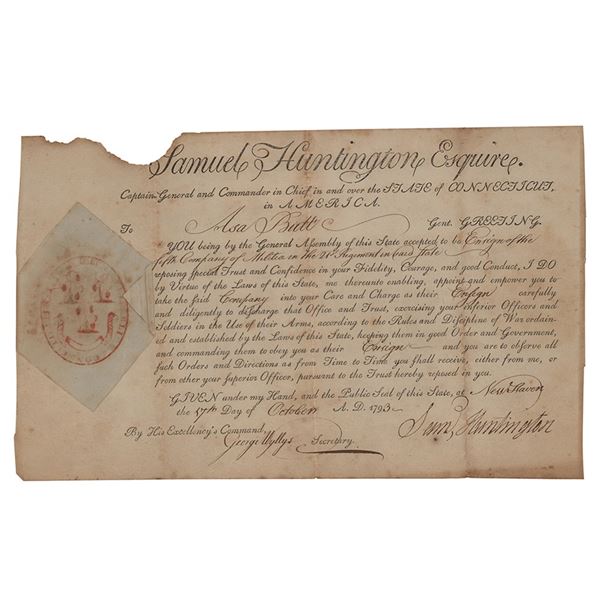 Samuel Huntington Esquire.
Captain-General and Commander in Chief in and over the STATE of CONNECTICUT,
in AMERICA.
To Asa Butt Gent. GREETING.
YOU being by the General Assembly of this State accepted to be Ensign of the
fifth Company of Militia in the Regiment in said State
reposing special Trust and Confidence in your Fidelity, Courage, and good Conduct, I DO
by Virtue of the Laws of this State, me thereunto enabling, appoint and empower you to
take the said Company into your Care and Charge as their Ensign carefully
and diligently to discharge that Office and Trust, exercising your inferior Officers and
Soldiers in the Use of their Arms, according to the Rules and Discipline of War ordain-
ed and established by the Laws of this State, keeping them in good Order and Government,
and commanding them to obey you as their Ensign and you are to observe all
such Orders and Directions as from Time to Time you shall receive, either from me, or
from other your superior Officer, pursuant to the Trust hereby reposed in you.
GIVEN under my Hand, and the Public Seal of this State, at New Haven
the Day of October A. D. 1793
By His Excellency's Command,
George Wyllys Secretary.
Saml Huntington